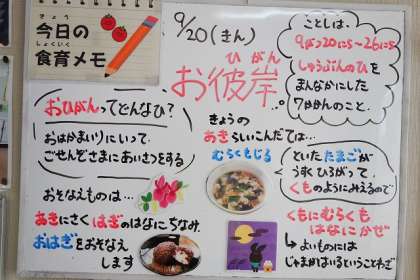 きょう
今日の
しょくいく
食育メモ
9/20(きん)
ひがん
お彼岸
ことしは、
9がつ20にち〜26にち
しゅうぶんのひを
まんなかにした
7かかんのこと。
おひがんってどんなひ?
おはかまいりにいって、
ごせんぞさまにあいさつをする
おそなえものは…
あきにさくはぎのはなにちなみ、
おはぎをおそなえ
します
きょうの
あきらしいこんだては…
むらくもじる
といたたまごが
うすくひろがって、
くものようにみえるので
くもにむらくも
はなにかぜ
↳よいものには
じゃまがはいるということわざ